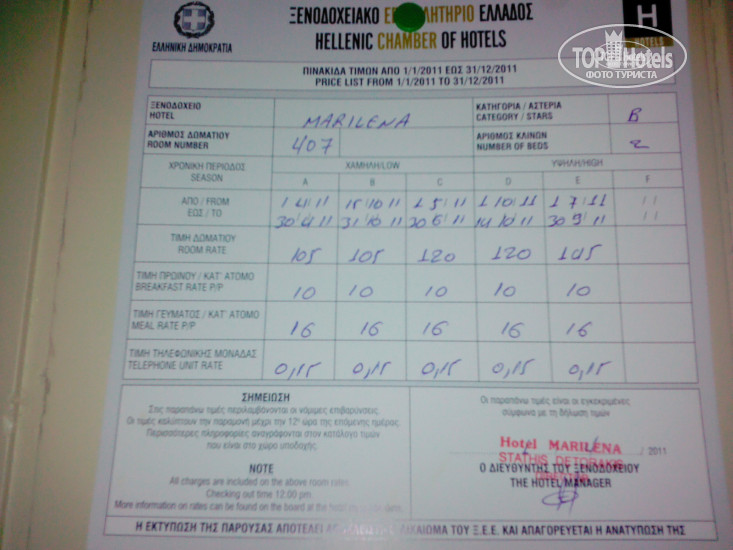 ΞΕΝΟΔΟΧΕΙΑΚΟ ΕΠΙΜΕΛΗΤΗΡΙΟ ΕΛΛΑΔΟΣ
HELLENIC CHAMBER OF HOTELS
ΕΛΛΗΝΙΚΗ ΔΗΜΟΚΡΑΤΙΑ
H
HOTELS
TOPHotels
ФОТО ТУРИСТА
ΠΙΝΑΚΙΔΑ ΤΙΜΩΝ ΑΠΟ 1/1/2011 ΕΩΣ 31/12/2011
PRICE LIST FROM 1/1/2011 TO 31/12/2011
ΞΕΝΟΔΟΧΕΙΟ
HOTEL
MARILENA
ΚΑΤΗΓΟΡΙΑ / ΑΣΤΕΡΙΑ
CATEGORY / STARS
B
ΑΡΙΘΜΟΣ ΔΩΜΑΤΙΟΥ
ROOM NUMBER
407
ΑΡΙΘΜΟΣ ΚΛΙΝΩΝ
NUMBER OF BEDS
2
ΧΡΟΝΙΚΗ ΠΕΡΙΟΔΟΣ
SEASON
ΧΑΜΗΛΗ/LOW
ΥΨΗΛΗ/HIGH
A B C D E F
ΑΠΟ / FROM
1 4 11 15 10 11 1 5 11 1 10 11 1 7 11
ΕΩΣ / TO
30 4 11 31 10 11 30 6 11 14 10 11 30 9 11
ΤΙΜΗ ΔΩΜΑΤΙΟΥ
ROOM RATE
105 105 120 120 145
ΤΙΜΗ ΠΡΩΙΝΟΥ / ΚΑΤ' ΑΤΟΜΟ
BREAKFAST RATE P/P
10 10 10 10 10
ΤΙΜΗ ΓΕΥΜΑΤΟΣ / ΚΑΤ' ΑΤΟΜΟ
MEAL RATE P/P
16 16 16 16 16
ΤΙΜΗ ΤΗΛΕΦΩΝΙΚΗΣ ΜΟΝΑΔΑΣ
TELEPHONE UNIT RATE
0,15 0,15 0,15 0,15 0,15
ΣΗΜΕΙΩΣΗ
Στις παραπάνω τιμές περιλαμβάνονται οι νόμιμες επιβαρύνσεις.
Οι τιμές καλύπτουν την παραμονή μέχρι την 12η ώρα της επόμενης ημέρας.
Περισσότερες πληροφορίες αναγράφονται στον κατάλογο τιμών
που είναι στο χώρο υποδοχής.
NOTE
All charges are included on the above room rates
Checking out time 12:00 pm.
More information on rates can be found on the board at the
Οι παραπάνω τιμές είναι οι εγκεκριμένες
σύμφωνα με τη δήλωση τιμών
Hotel MARILENA
/ 2011
STATHIS DETORAKIS
DIRECTOR
Ο ΔΙΕΥΘΥΝΤΗΣ ΤΟΥ ΞΕΝΟΔΟΧΕΙΟΥ
THE HOTEL MANAGER
Η ΕΚΤΥΠΩΣΗ ΤΗΣ ΠΑΡΟΥΣΑΣ ΑΠΟΤΕΛΕΙ ΔΙΚΑΙΩΜΑ ΤΟΥ Ξ.Ε.Ε. ΚΑΙ ΑΠΑΓΟΡΕΥΕΤΑΙ Η ΑΝΑΤΥΠΩΣΗ ΤΗΣ